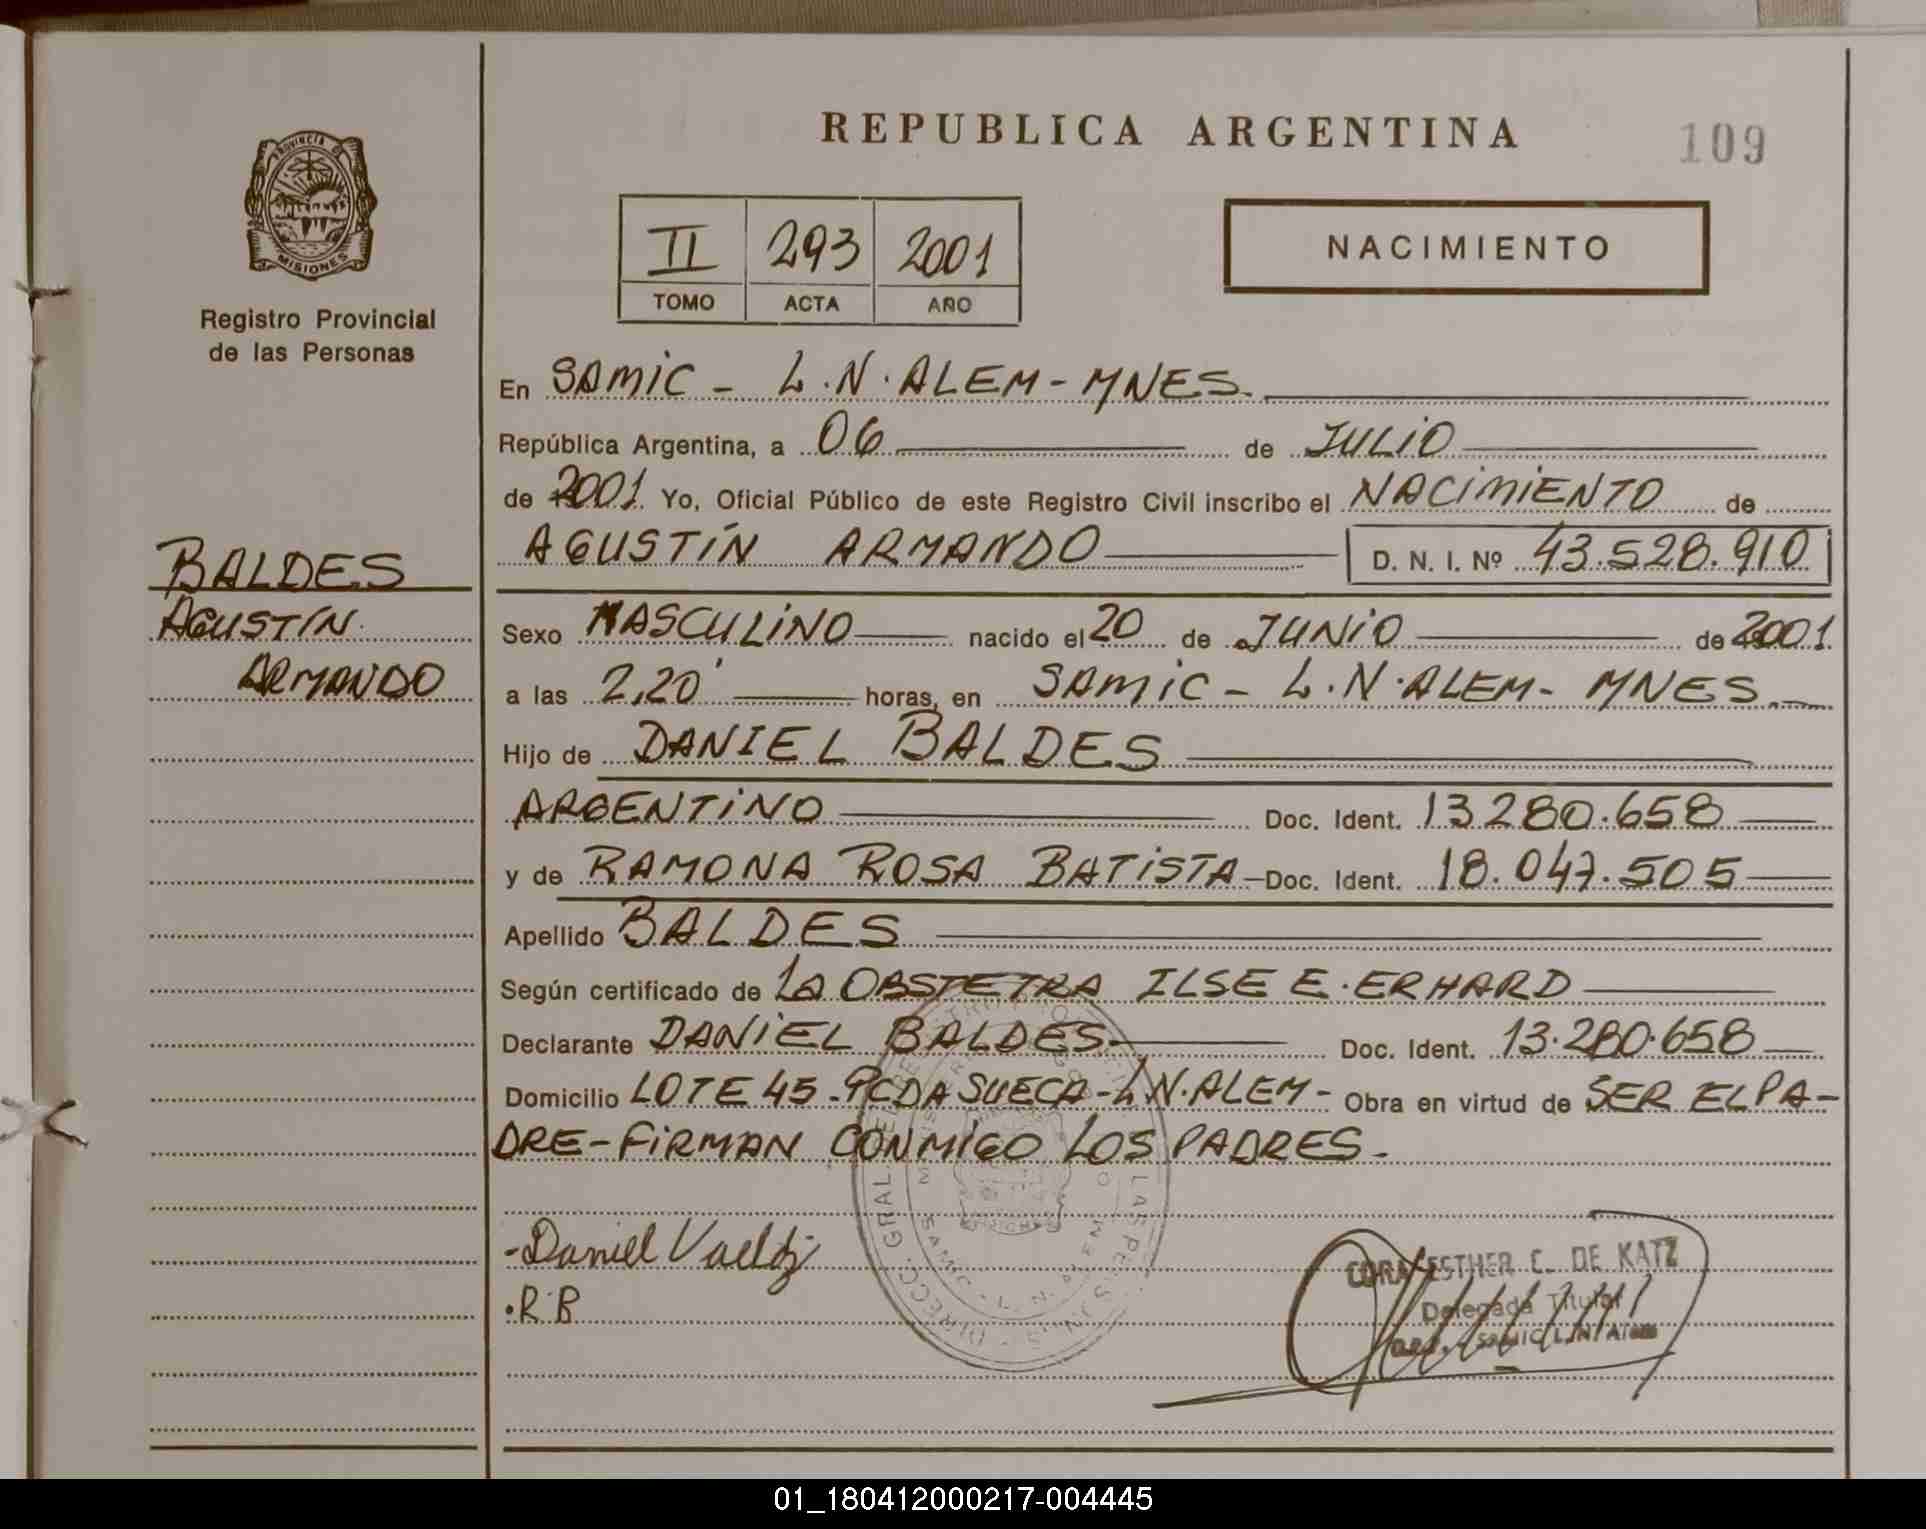 REPUBLICA ARGENTINA
109
PROVINCIA DE
MISIONES
Registro Provincial
de las Personas
II 293 2001
TOMO ACTA AÑO
NACIMIENTO
En SAMIC - L.N. ALEM - MNES.
República Argentina, a 06 de JULIO
de 2001. Yo, Oficial Público de este Registro Civil inscribo el NACIMIENTO de
AGUSTÍN ARMANDO D. N. I. Nº 43.528.910
BALDES
AGUSTÍN
ARMANDO
Sexo MASCULINO nacido el 20 de JUNIO de 2001.
a las 2,20' horas, en SAMIC - L.N. ALEM - MNES.
Hijo de DANIEL BALDES
ARGENTINO Doc. Ident. 13280.658
y de RAMONA ROSA BATISTA Doc. Ident. 18.047.505
Apellido BALDES
Según certificado de LA OBSTETRA ILSE E. ERHARD
Declarante DANIEL BALDES Doc. Ident. 13.280.658
Domicilio LOTE 45 - PCDA SUECA - L.N. ALEM - Obra en virtud de SER EL PA-
DRE - FIRMAN CONMIGO LOS PADRES.
- Daniel
. R B
CORA ESTHER C. DE KATZ
Delegada Titular
SAMIC L.N. Alem
01_180412000217-004445